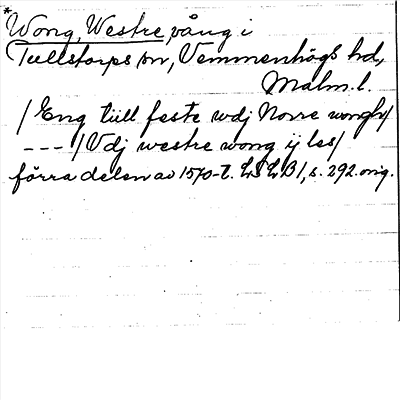 *
Wong, Westre, vång i
Tullstorps sn, Vemmenhögs hd,
Malm. l.
/Eng till feste wdj Norre wongh/
--- /Vdj westre wong ij les/
förra delen av 1570-t. LSLB1, s. 292. orig.